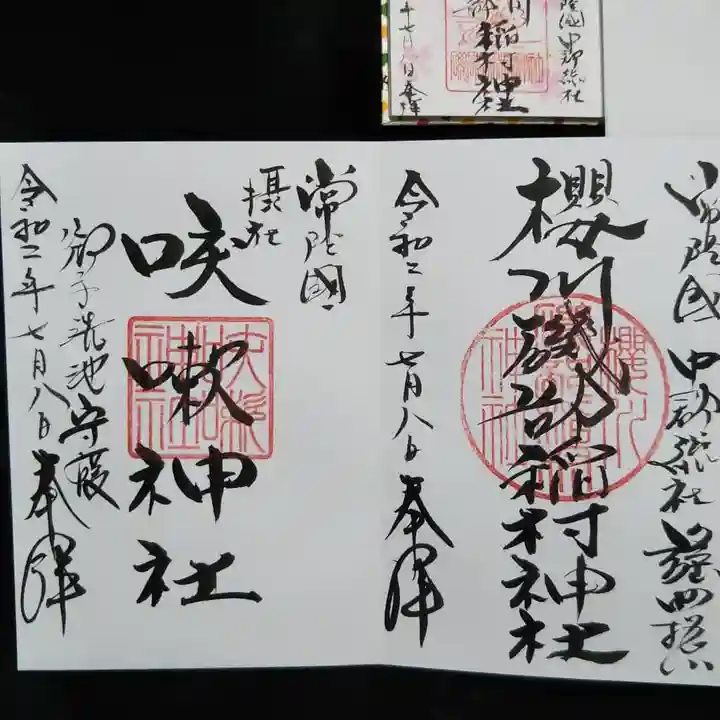 常陸國 中郡総社
櫻川磯部稲村神社
令和二年七月八日 奉拝
常陸國
摂社
咳嗽神社
御手洗池守護
令和二年七月八日 奉拝
常陸國中郡総社
稲村神社
年七月八日奉拝